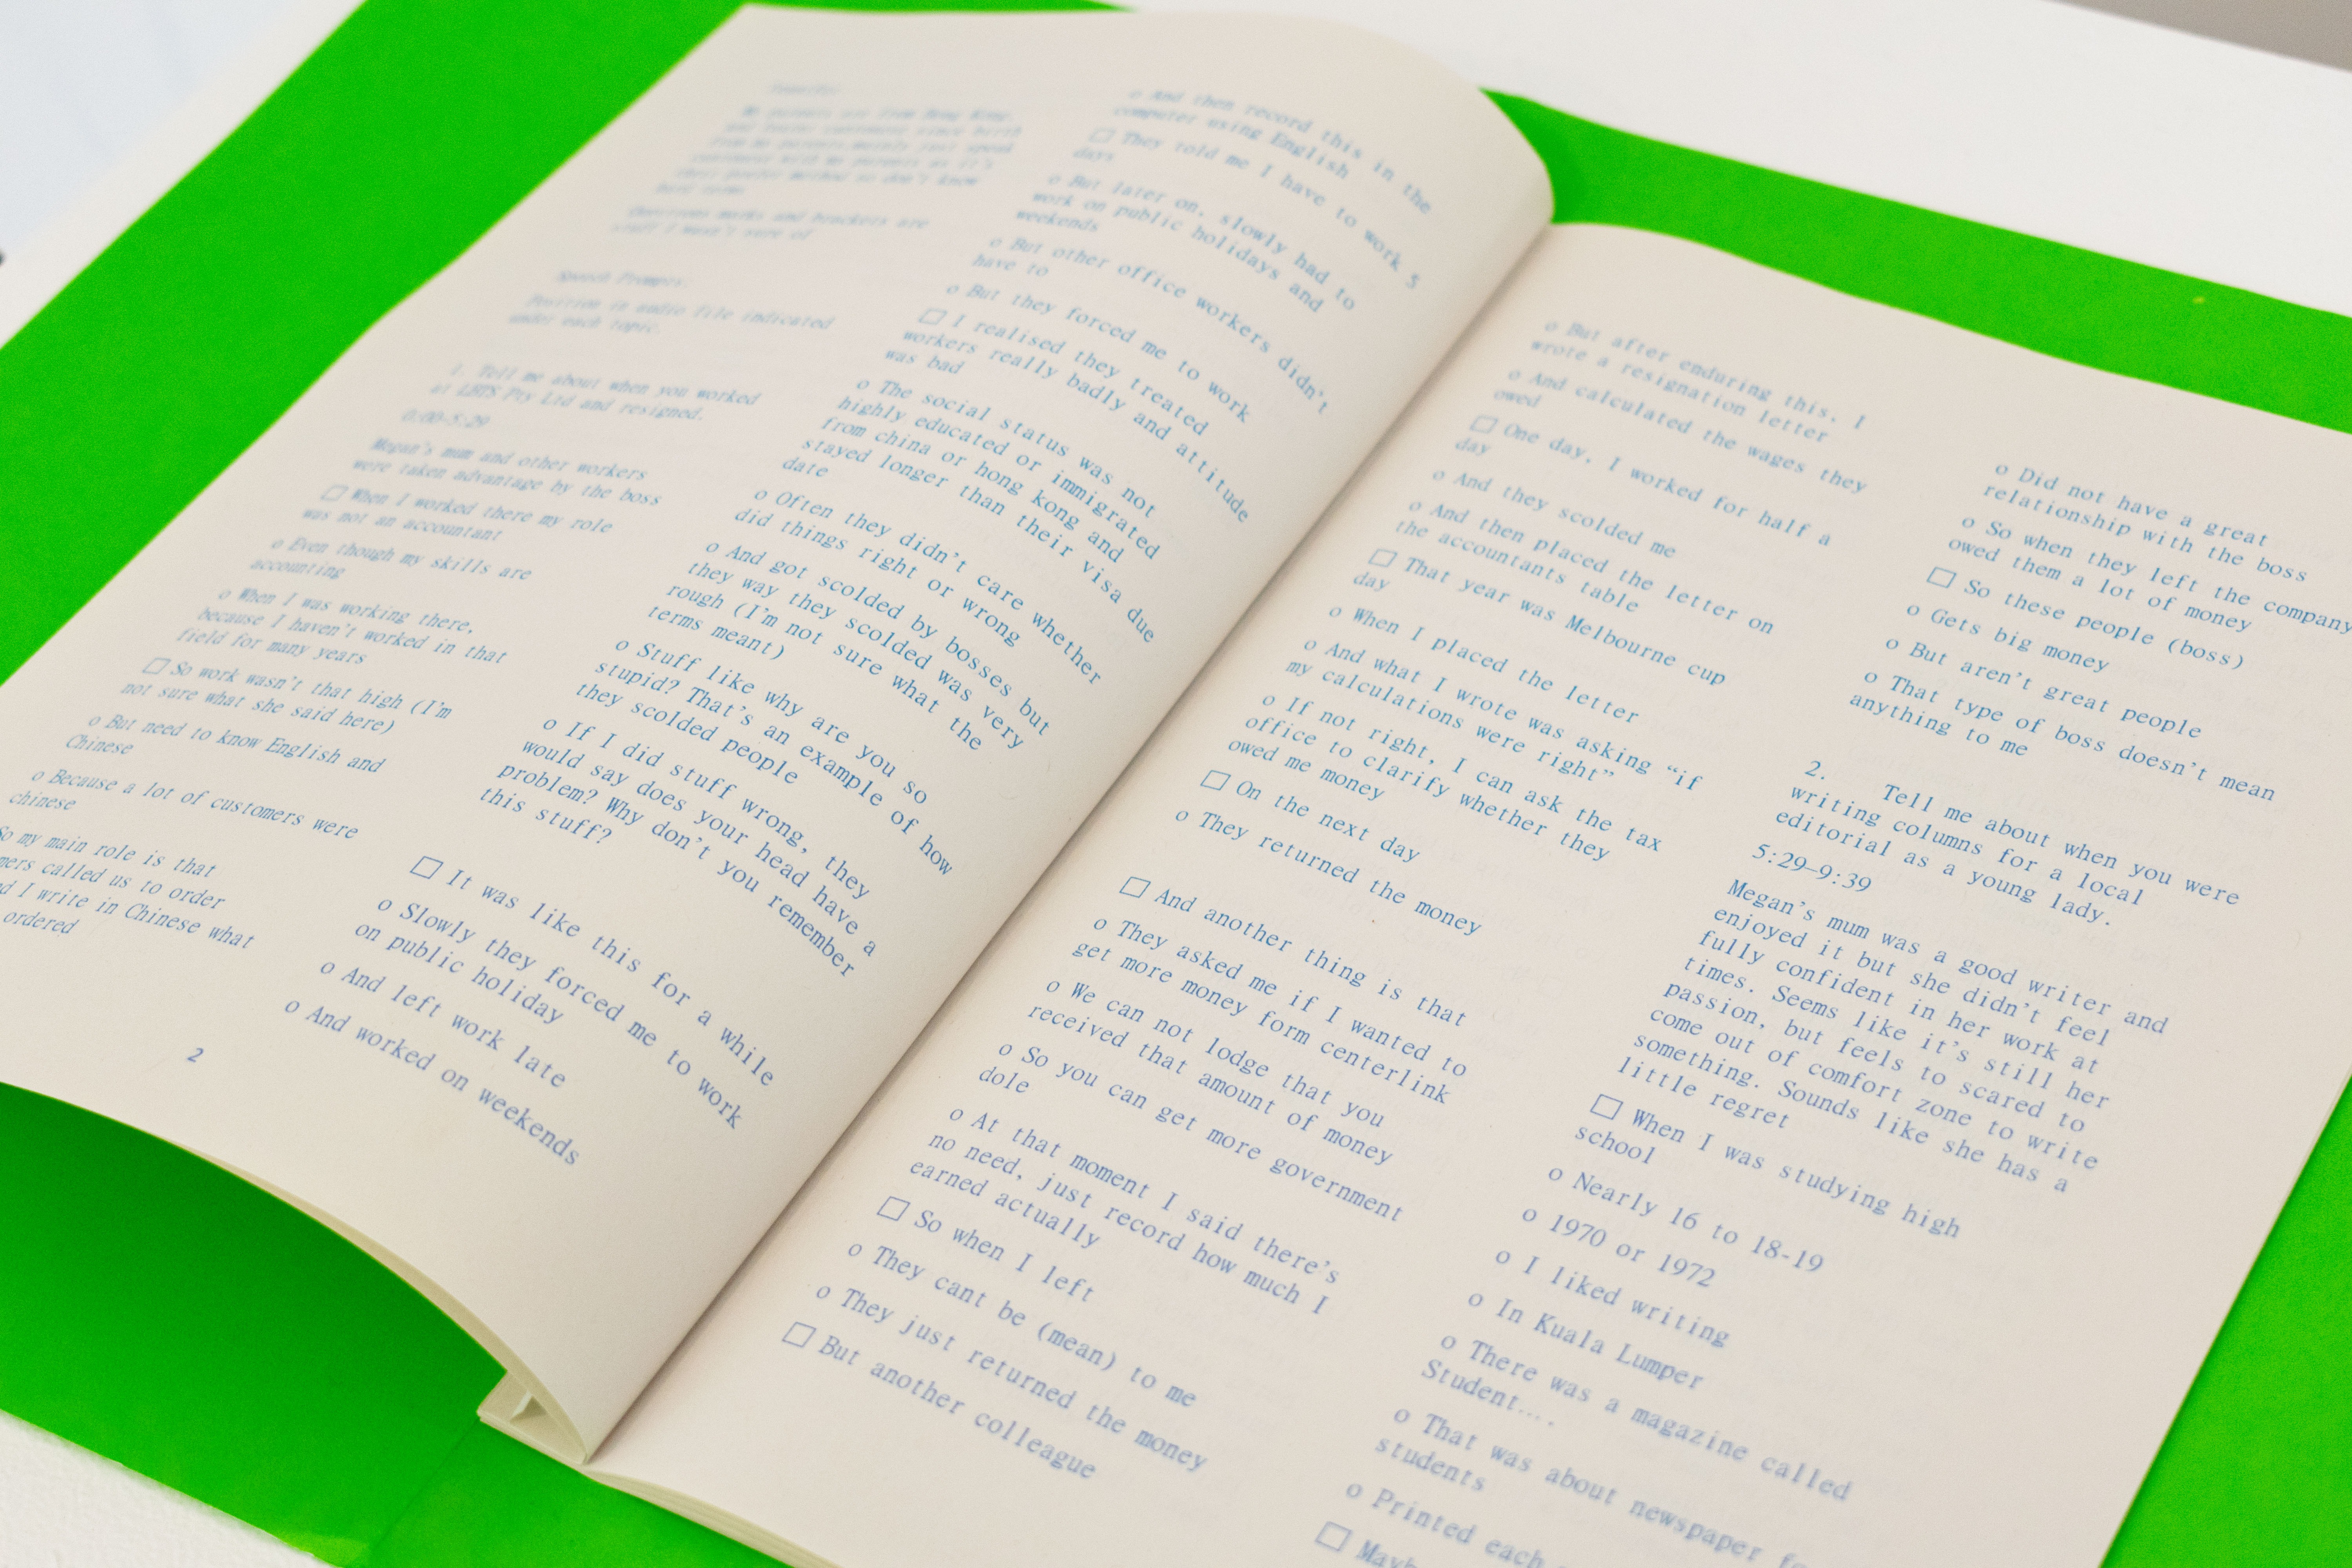 My parents are from Hong Kong,
Questions marks and brackets are
stuff I wasn't sure of
Speech Prompts:
Position in audio file indicated
under each topic.
1. Tell me about when you worked
at LBTS Pty Ltd and resigned.
0:00-5:29
Megan's mum and other workers
were taken advantage by the boss
□ When I worked there my role
was not an accountant
o Even though my skills are
accounting
o When I was working there,
because I haven't worked in that
field for many years
□ So work wasn't that high (I'm
not sure what she said here)
o But need to know English and
Chinese
o Because a lot of customers were
chinese
So my main role is that
called us to order
I write in Chinese what
ordered
2
o And then record this in the
computer using English
□ They told me I have to work 5
days
o But later on, slowly had to
work on public holidays and
weekends
o But other office workers didn't
have to
o But they forced me to work
□ I realised they treated
workers really badly and attitude
was bad
o The social status was not
highly educated or immigrated
from china or hong kong and
stayed longer than their visa due
date
o Often they didn't care whether
did things right or wrong
o And got scolded by bosses but
they way they scolded was very
rough (I'm not sure what the
terms meant)
o Stuff like why are you so
stupid? That's an example of how
they scolded people
o If I did stuff wrong, they
would say does your head have a
problem? Why don't you remember
this stuff?
□ It was like this for a while
o Slowly they forced me to work
on public holiday
o And left work late
o And worked on weekends
o But after enduring this, I
wrote a resignation letter
o And calculated the wages they
owed
□ One day, I worked for half a
day
o And they scolded me
o And then placed the letter on
the accountants table
□ That year was Melbourne cup
day
o When I placed the letter
o And what I wrote was asking “if
my calculations were right”
o If not right, I can ask the tax
office to clarify whether they
owed me money
□ On the next day
o They returned the money
□ And another thing is that
o They asked me if I wanted to
get more money form centerlink
o We can not lodge that you
received that amount of money
o So you can get more government
dole
o At that moment I said there's
no need, just record how much I
earned actually
□ So when I left
o They cant be (mean) to me
o They just returned the money
□ But another colleague
o Did not have a great
relationship with the boss
o So when they left the company
owed them a lot of money
□ So these people (boss)
o Gets big money
o But aren't great people
o That type of boss doesn't mean
anything to me
2. Tell me about when you were
writing columns for a local
editorial as a young lady.
5:29–9:39
Megan's mum was a good writer and
enjoyed it but she didn't feel
fully confident in her work at
times. Seems like it's still her
passion, but feels to scared to
come out of comfort zone to write
something. Sounds like she has a
little regret
□ When I was studying high
school
o Nearly 16 to 18-19
o 1970 or 1972
o I liked writing
o In Kuala Lumper
o There was a magazine called
Student....
o That was about newspaper
students
o Printed each
□